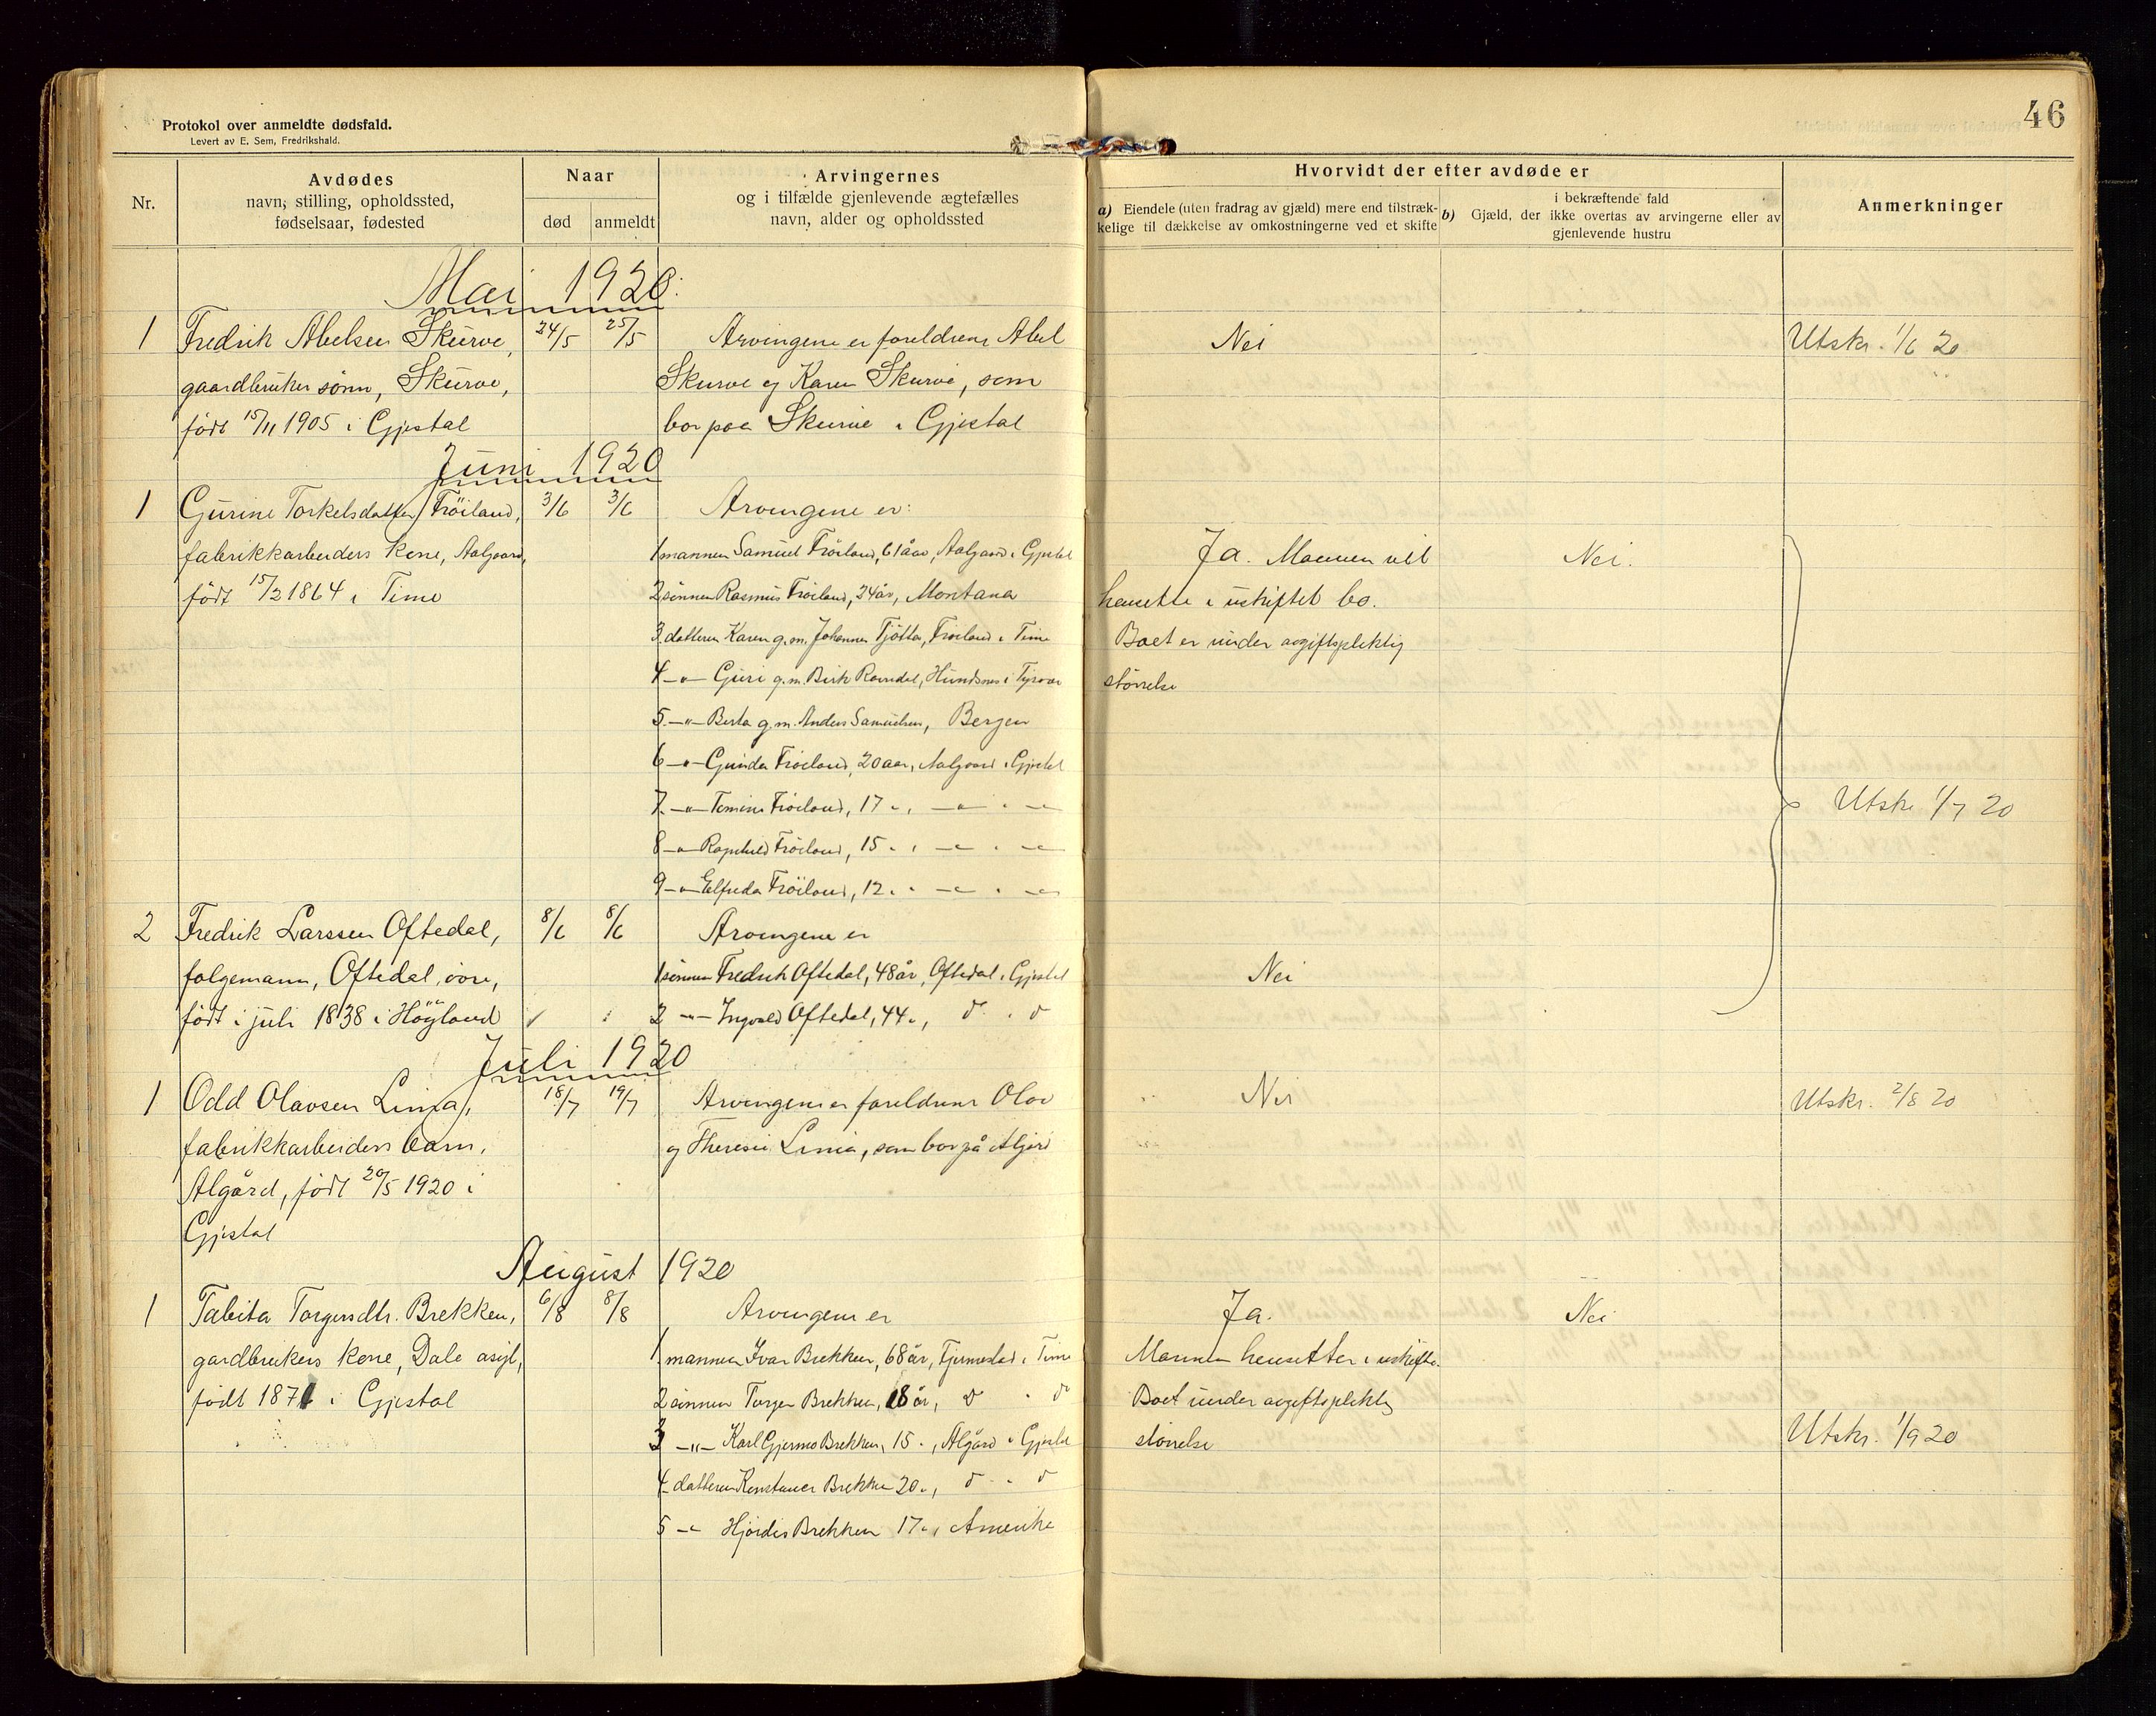 46
Protokol over anmeldte dødsfald.
Levert av E. Sem, Fredrikshald.
Nr.
Avdødes
navn, stilling, opholdssted,
fødselsaar, fødested
Naar
død
anmeldt
Arvingernes
og i tilfælde gjenlevende ægtefælles
navn, alder og opholdssted
Hvorvidt der efter avdøde er
a) Eiendele (uten fradrag av gjæld) mere end tilstræk-
kelige til dækkelse av omkostningerne ved et skifte
i bekræftende fald
b) Gjæld, der ikke overtas av arvingerne eller av
gjenlevende hustru
Anmerkninger
Mai 1920:
1 Fredrik Abelsen Skurve, 24/5 25/5 Arvingene er foreldrene Abel Nei Utskr. 1/6 20
gaardbruker sønn, Skurve, Skurve og Karen Skurve, som
født 15/11 1905 i Gjestal bor paa Skurve i Gjestal
Juni 1920
1 Gurine Torkelsdatter Frøiland, 3/6 3/6 Arvingene er:
fabrikkarbeiders kone, Aalgaard, 1 mannen Samuel Frøiland, 61 åar, Aalgaard i Gjestal Ja. Mannen vil Nei.
født 15/2 1864 i Time 2 sønnen Rasmus Frøiland, 24 år, Montana hensitte i uskiftet bo.
3 datteren Karen g.m. Johannes Tjøtta, Frøiland i Time Boet er under avgiftspliktig
4 -"- Guri g.m. Birk Ravndal, Hundsnes i Tysvær størrelse
5 -"- Berta g.m. Anders Samuelsen, Bergen
6 -"- Gunda Frøiland, 20 aar, Aalgaard i Gjestal
7 -"- Tomine Frøiland, 17 ", -"- " -"- Utskr. 1/7 20
8 -"- Ragnhild Frøiland, 15 ", -"- " -"-
9 -"- Elfrida Frøiland, 12 " -"- " -"-
2 Fredrik Larssen Oftedal, 8/6 8/6 Arvingene er
folgemann, Oftedal, øvre, 1 sønnen Fredrik Oftedal, 48 år, Oftedal i Gjestal Nei
født i juli 1838 i Høyland 2 -"- Ingvald Oftedal, 44 ",
Juli 1920
1 Odd Olavsen Lima, 18/7 19/7 Arvingene er foreldrene Olav Nei Utskr. 2/8 20
fabrikkarbeiders barn, og Theresie Lima, som bor på Algård
Algård, født 20/5 1920 i
Gjestal
August 1920
1 Tabita Torgersdtr. Brekken, 6/8 8/8 Arvingene er Ja. Nei
gardbrukers kone, Dale asyl, 1 mannen Ivar Brekken, 68 år, i Time Mannen hensitter i uskifte.
født 1871 i Gjestal 2 sønnen Torger Brekken, 18 år, Boet under avgiftspliktig
3 -"- Karl Gjermo Brekken, 15 ", Algård i Gjestal størrelse Utskr. 1/9 20
4 datteren Konstance Brekken 20 ",
5 -"- Hjørdis Brekken 17 ", Amerika